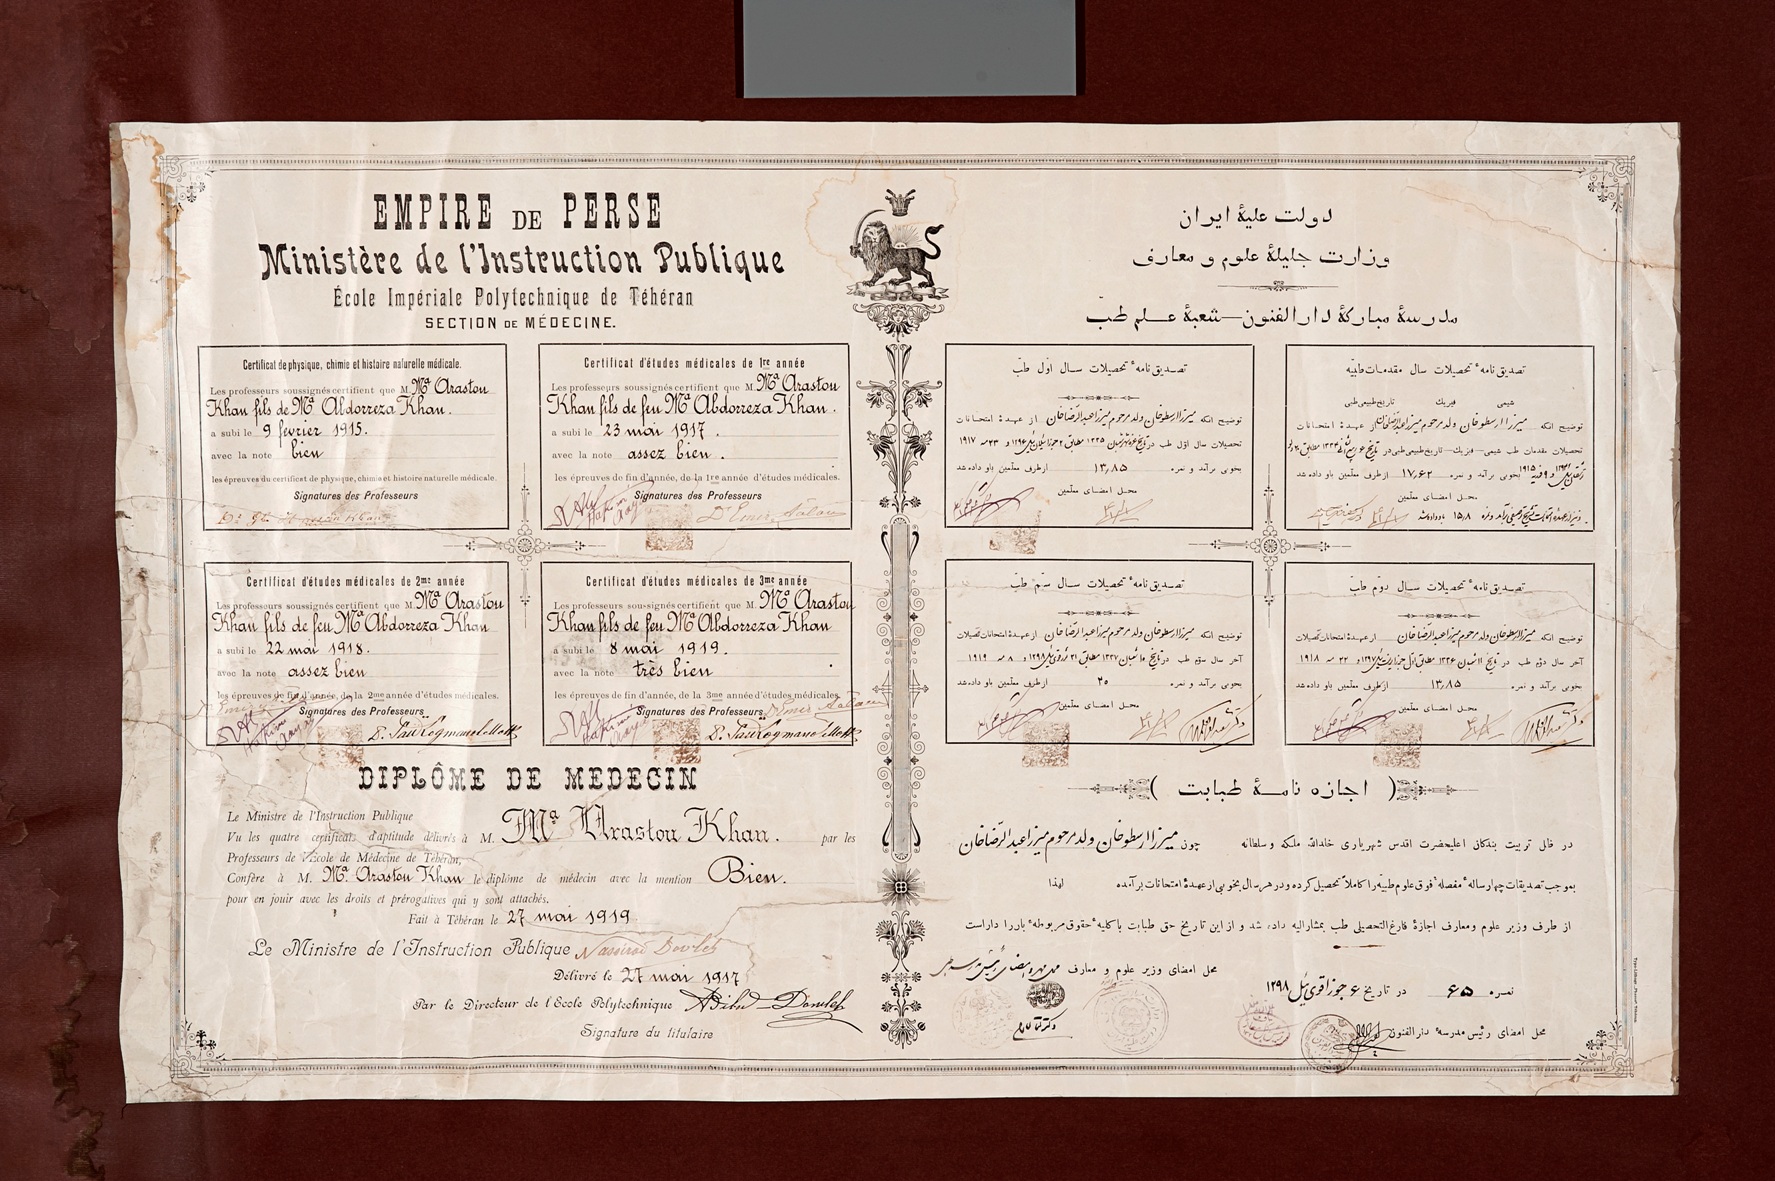 EMPIRE DE PERSE
Ministère de l'Instruction Publique
École Impériale Polytechnique de Téhéran
SECTION DE MÉDECINE.
Certificat de physique, chimie et histoire naturelle médicale.
Les professeurs soussignés certifient que M. Ma Arastou
Khan fils de Ma Abdorreza Khan.
a subi le 9 fevrier 1915.
avec la note bien
les épreuves du certificat de physique, chimie et histoire naturelle médicale.
Signatures des Professeurs
Certificat d'études médicales de 1re année
Les professeurs soussignés certifient que M. Ma Arastou
Khan fils de feu Ma Abdorreza Khan.
a subi le 23 mai 1917.
avec la note assez bien.
les épreuves de fin d'année, de la 1re année d'études médicales.
Signatures des Professeurs
Certificat d'études médicales de 2me année
Les professeurs soussignés certifient que M. Ma Arastou
Khan fils de feu Ma Abdorreza Khan
a subi le 22 mai 1918.
avec la note assez bien
les épreuves de fin d'année, de la 2me année d'études médicales.
Signatures des Professeurs
Certificat d'études médicales de 3me année
Les professeurs sous-signés certifient que M. Ma Arastou
Khan fils de feu Ma Abdorreza Khan
a subi le 8 mai 1919.
avec la note très bien
les épreuves de fin d'année, de la 3me année d'études médicales.
Signatures des Professeurs
DIPLÔME DE MEDECIN
Le Ministre de l'Instruction Publique
Vu les quatre certificats d'aptitude délivrés à M. Ma Arastou Khan. par les
Professeurs de l'École de Médecine de Téhéran,
Confère à M. Ma Arastou Khan le diplôme de médecin avec la mention Bien.
pour en jouir avec les droits et prérogatives qui y sont attachés.
Fait à Téhéran le 27 mai 1919
Le Ministre de l'Instruction Publique
Délivré le 27 mai 1917
Par le Directeur de l'École Polytechnique
Signature du titulaire
دولت علیهٔ ایران
وزارت جلیلهٔ علوم و معارف
مدرسهٔ مبارکهٔ دارالفنون — شعبهٔ علم طبّ
تصدیق نامهٔ تحصیلات سال مقدمات طبیّه
شیمی فیزیک تاریخ طبیعی طبی
توضیح آنکه میرزا ارسطوخان ولد مرحوم میرزا عبدالرضاخان از عهدهٔ امتحانات
تحصیلات مقدمات طب شیمی - فیزیک - تاریخ طبیعی طبی در تاریخ
بخوبی برآمد و نمره ۱۷٫۶۲ از طرف معلمین باو داده شد
محل امضای معلمین
تصدیق نامهٔ تحصیلات سال اوّل طبّ
توضیح آنکه میرزا ارسطوخان ولد مرحوم میرزا عبدالرضاخان از عهدهٔ امتحانات
تحصیلات سال اوّل طب در تاریخ ۱۳۳۵ مطابق ۱۲۹۶ و ۲۳ مه ۱۹۱۷
بخوبی برآمد و نمره ۱۳٫۸۵ از طرف معلمین باو داده شد
محل امضای معلمین
تصدیق نامهٔ تحصیلات سال دوّم طبّ
توضیح آنکه میرزا ارسطوخان ولد مرحوم میرزا عبدالرضاخان از عهدهٔ امتحانات تحصیلات
آخر سال دوّم طب در تاریخ ۱۱ شعبان ۱۳۳۶ مطابق ۱۲۹۷ و ۲۲ مه ۱۹۱۸
بخوبی برآمد و نمره ۱۳٫۸۵ از طرف معلمین باو داده شد
محل امضای معلمین
تصدیق نامهٔ تحصیلات سال سیّم طبّ
توضیح آنکه میرزا ارسطوخان ولد مرحوم میرزا عبدالرضاخان از عهدهٔ امتحانات تحصیلات
آخر سال سیّم طب در تاریخ شعبان ۱۳۳۷ مطابق ۱۲۹۸ و ۸ مه ۱۹۱۹
بخوبی برآمد و نمره از طرف معلمین باو داده شد
محل امضای معلمین
( اجازه نامهٔ طبابت )
در ظل تربیت بندگان اعلیحضرت اقدس شهریاری خلدالله ملکه و سلطانه چون میرزا ارسطوخان ولد مرحوم میرزا عبدالرضاخان
بموجب تصدیقات چهارسالهٔ مفصلهٔ فوق علوم طبیّه را کاملاً تحصیل کرده و در هر سال بخوبی از عهدهٔ امتحانات برآمده لهذا
از طرف وزیر علوم و معارف اجازهٔ فارغ التحصیلی طب بمشارالیه داده شد و از این تاریخ حق طبابت با کلیهٔ حقوق مربوطهٔ باو را داراست
محل امضای وزیر علوم و معارف
نمره ۶۵ در تاریخ ۶ جوزا قوی ئیل ۱۲۹۸
محل امضای رئیس مدرسهٔ دارالفنون